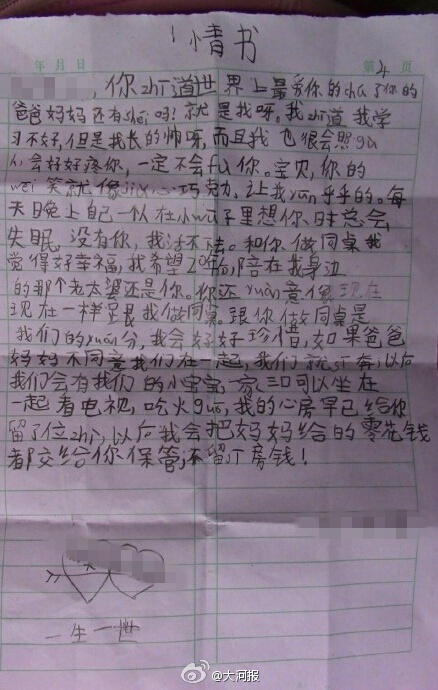 情书
年 月 日 第4页
，你zhī道世界上最爱你的chú了你的
爸爸妈妈还有shéi吗！就是我呀。我zhī道我学
习不好，但是我长的帅呀，而且我也很会照gù
人，会好好疼你，一定不会fù你。宝贝，你的
wēi笑就像jiā心巧克力，让我yūn乎乎的。每
天晚上自己一个人在小wū子里想你，时总会
失眠，没有你，我活不下去。和你做同桌我
觉得好幸福，我希望20年后，陪在我身边
的那个老太婆还是你。你还yuàn意像现在
现在一样跟我做同桌。跟你做同桌是
我们的yuán分，我会好好珍惜，如果爸爸
妈妈不同意我们在一起，我们就ī奔，以后
我们会有我们的小宝宝，一家三口可以坐在
一起看电视，吃火guō，我的心房早已给你
留了位zhì，以后我会把妈妈给的零花钱
都交给你保管，不留ī房钱！
一生一世
@大河报